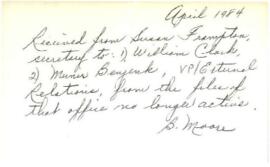 April 1984
Received from Susan Frampton,
secretary to: 1) William Clark,
2) Munir Benjenk, VP/External
Relations, from the files of
that office no longer active.
S. Moore